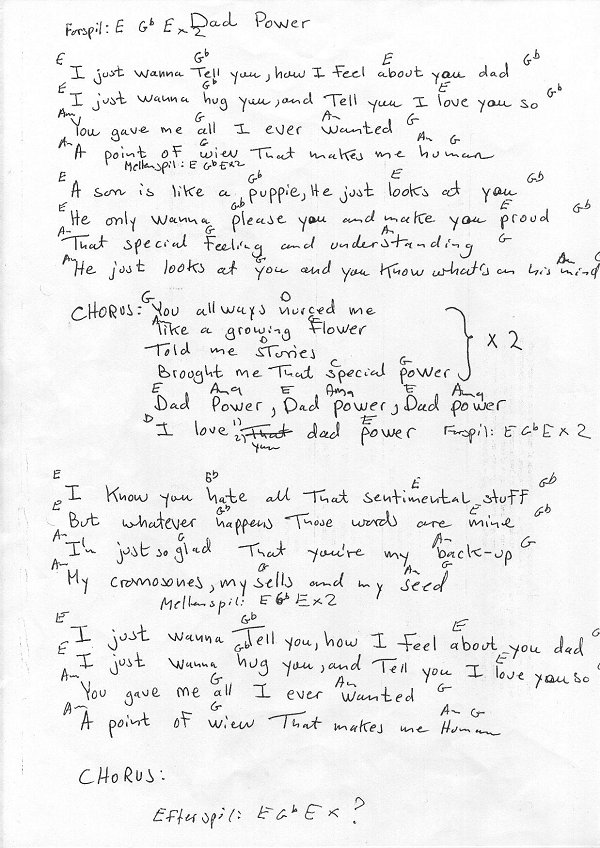 Forspil: E Gb E x 2 Dad Power
E Gb E Gb
I just wanna Tell you, how I Feel about you dad
E Gb E Gb
I just wanna hug you, and Tell you I love you so
Am G Am G
You gave me all I ever wanted
Am G Am G
A point of wiew That makes me human
Mellemspil: E Gb E x 2
E Gb E Gb
A son is like a puppie, He just looks at you
E Gb E Gb
He only wanna please you and make you proud
Am G Am G
That special Feeling and understanding
Am G Am G
He just looks at you and you know what's on his mind
G D
CHORUS: You allways nurced me
Am C
like a growing Flower
D
Told me stories
C G
Brought me That special power
} x 2
E Am9 E Am9 E Am9
Dad Power, Dad power, Dad power
D E
I love 1) That 2) you dad power Forspil: E Gb E x 2
E Gb E Gb
I know you hate all That sentimental stuff
E Gb E Gb
But whatever happens Those words are mine
Am G Am G
I'm just so glad That you're my back-up
Am G Am G
My cromosones, my sells and my seed
Mellemspil: E Gb E x 2
E Gb E G
I just wanna Tell you, how I Feel about you dad
E Gb E G
I just wanna hug you, and Tell you I love you so
Am G Am G
You gave me all I ever wanted
Am G Am G
A point of wiew That makes me Human
CHORUS:
Efterspil: E Gb E x ?